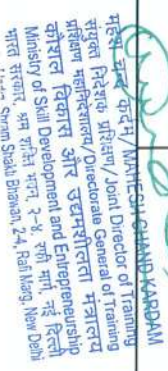 महेश चन्द कदम/MAHESH CHAND KARDAM
संयुक्त निदेशक प्रशिक्षण/Joint Director of Training
प्रशिक्षण महानिदेशालय/Directorate General of Training
कौशल विकास और उद्यमशीलता मंत्रालय
Ministry of Skill Development and Entrepreneurship
भारत सरकार, श्रम शक्ति भवन, २-४, रफी मार्ग, नई दिल्ली
Shram Shakti Bhawan, 2-4, Rafi Marg, New Delhi